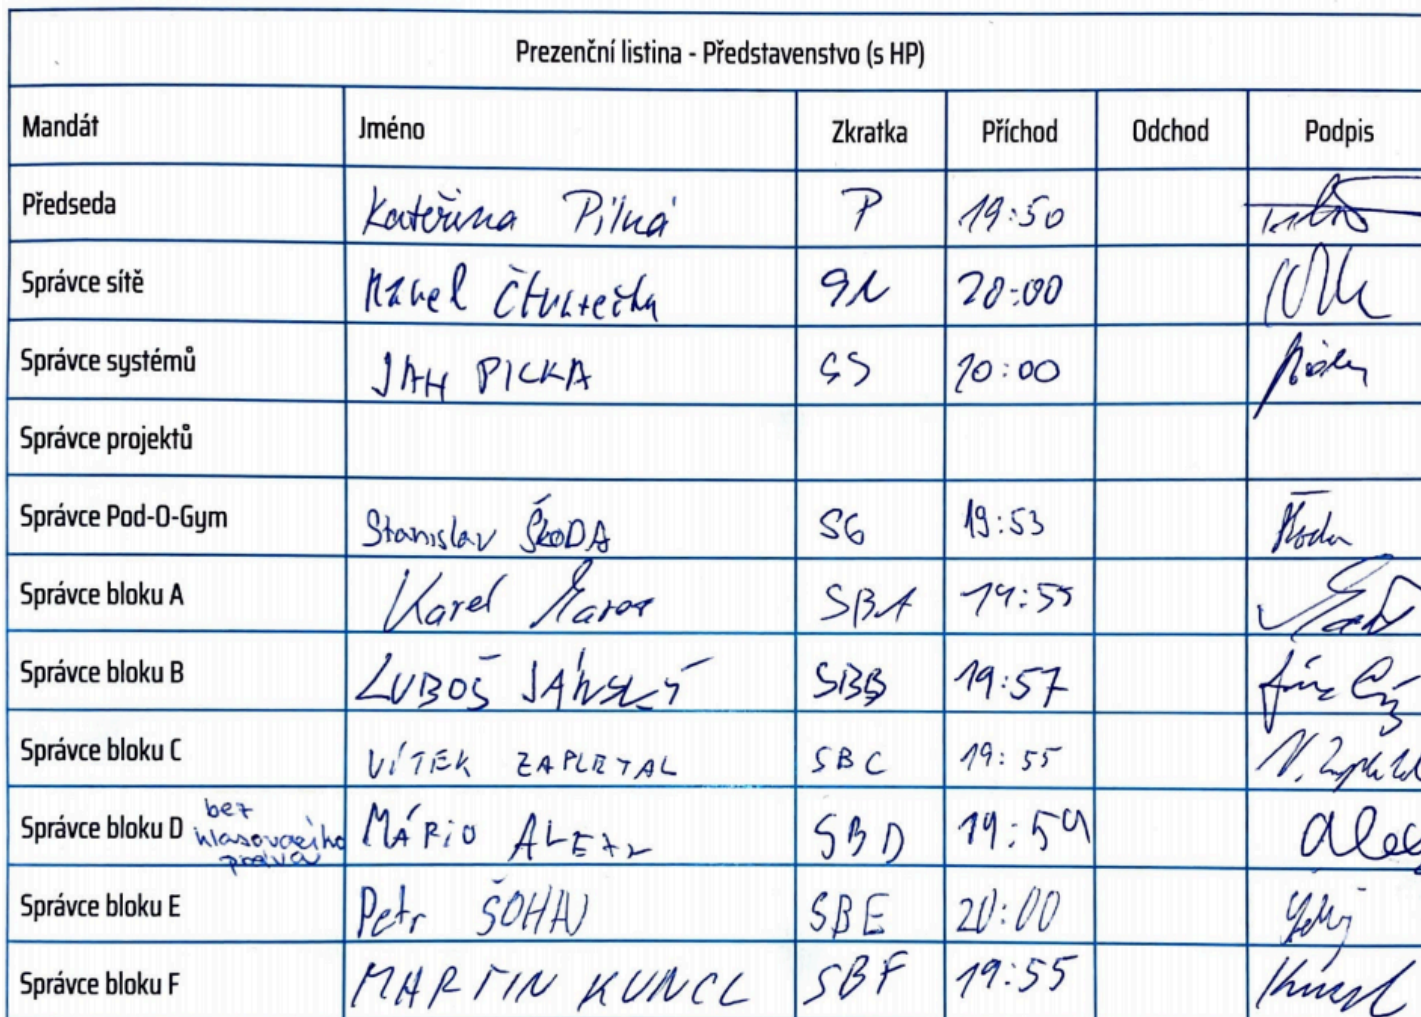 Prezenční listina - Představenstvo (s HP)
Mandát Jméno Zkratka Příchod Odchod Podpis
Předseda Kateřina Pilná P 19:50
Správce sítě Čtvrtečka 20:00
Správce systémů JAN PICKA SS 20:00
Správce projektů
Správce Pod-O-Gym Stanislav ŠKODA SG 19:53
Správce bloku A Karel SBA 19:55
Správce bloku B LUBOŠ JÁNSKÝ SBB 19:57
Správce bloku C VÍTEK ZAPLETAL SBC 19:55
Správce bloku D bez hlasovacího práva MÁRIO SBD 19:59
Správce bloku E Petr SBE 20:00
Správce bloku F MARTIN KUNCL SBF 19:55